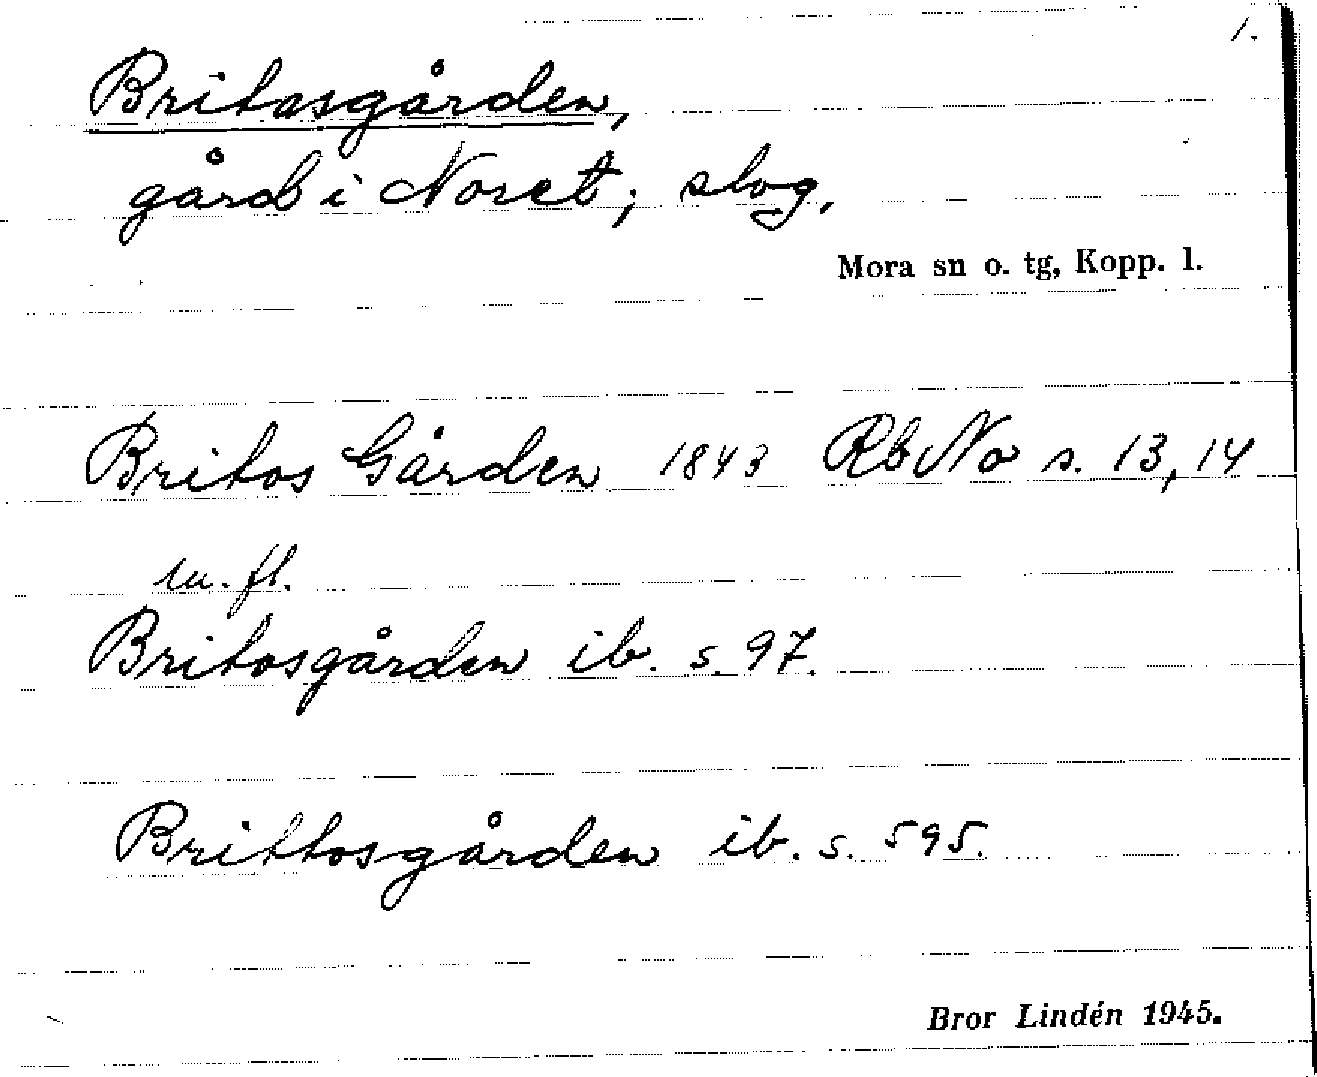 1.
Britasgården,
gård i Noret; slog,
Mora sn o. tg, Kopp. l.
Britos Gården 1843 RbNo s. 13, 14
m. fl.
Britosgården ib. s. 97.
Brittosgården ib. s. 595.
Bror Lindén 1945.